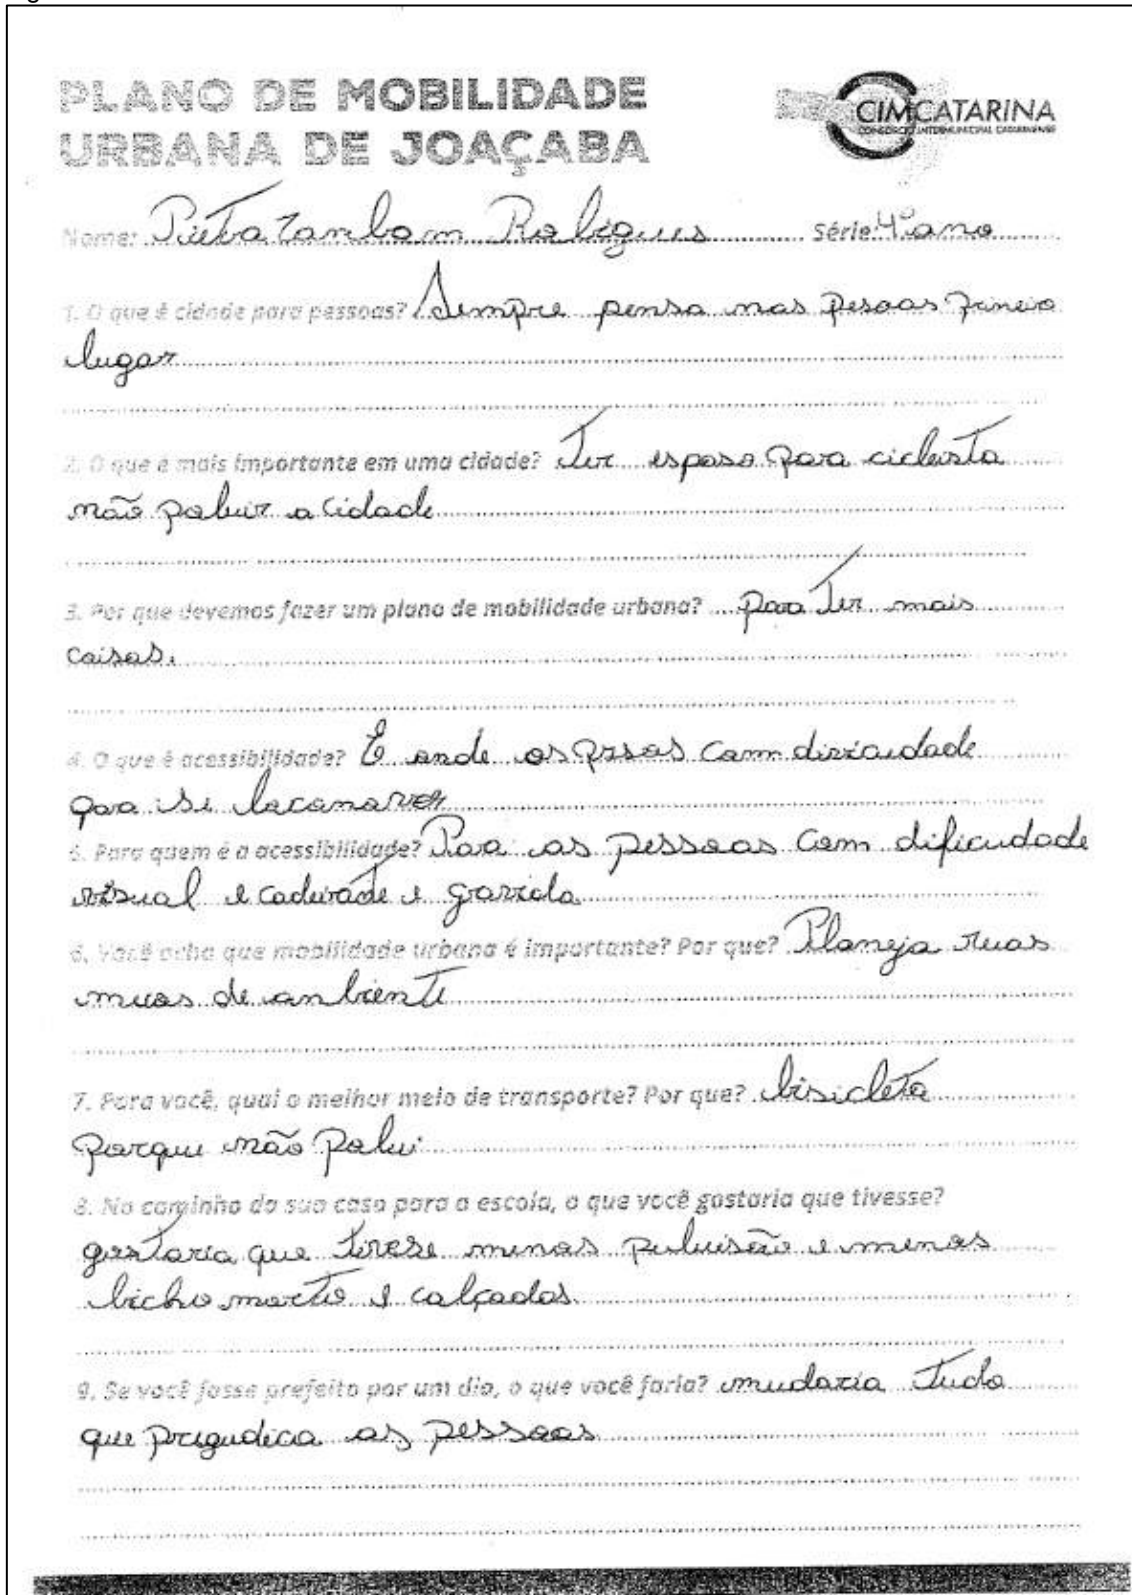 PLANO DE MOBILIDADE
URBANA DE JOAÇABA
CIMCATARINA
CONSÓRCIO INTERMUNICIPAL CATARINENSE
Nome: Pietra Zambom Rodigues Série 4º ano
1. O que é cidade para pessoas? Sempre pensa nas pesoas
lugar
2. O que é mais importante em uma cidade? Ter espaso para ciclista
não poluir a cidade
3. Por que devemos fazer um plano de mobilidade urbana? para Ter mais
coisas.
4. O que é acessibilidade? É onde as com
para si
5. Para quem é a acessibilidade? Para as pessoas com dificudade
visual e cadeirate e
6. Você acha que mobilidade urbana é importante? Por que? Planeja ruas
de anbiente
7. Para você, qual o melhor meio de transporte? Por que? bisicleta
porque não polui
8. No caminho da sua casa para a escola, o que você gostaria que tivesse?
gostaria que tivese menos puluisão e menos
bicho morto e calçadas
9. Se você fosse prefeito por um dia, o que você faria? mudaria tudo
que prigudica as pessoas